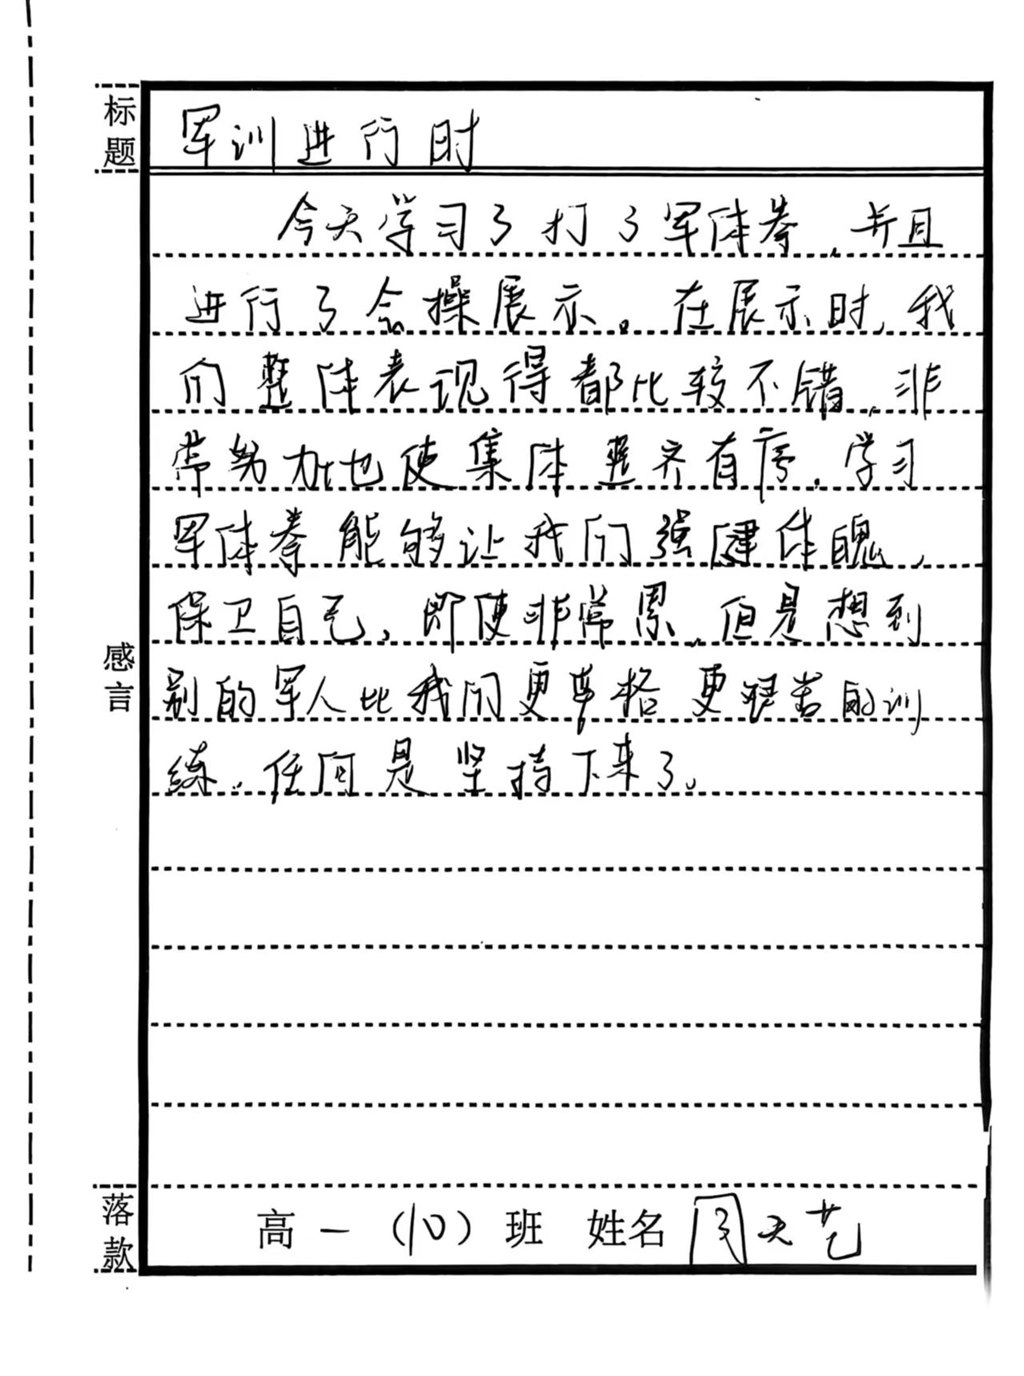 标题
军训进行时
今天学习了打了军体拳，并且
进行了会操展示。在展示时，我
们整体表现得都比较不错，非
常努力地使集体整齐有序，学习
军体拳能够让我们强健体魄，
保卫自己，即使非常累，但是想到
别的军人比我们更严格更艰苦的训
练，任何是坚持下来了。
感言
落款
高一（10）班 姓名 周天艺